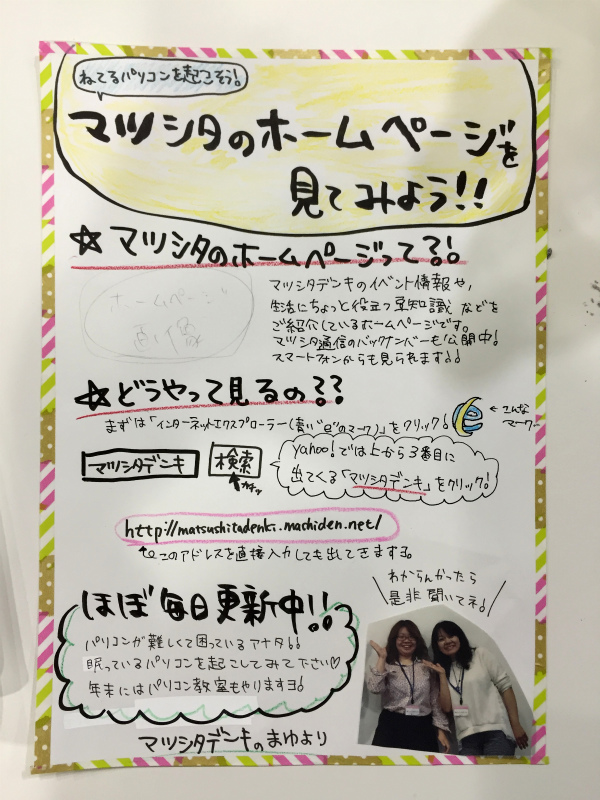 ねてるパソコンを起こそう！
マツシタのホームページを
見てみよう！！
☆マツシタのホームページって？！
ホームページ
画像
マツシタデンキのイベント情報や、
生活にちょっと役立つ豆知識などを
ご紹介しているホームページです。
マツシタ通信のバックナンバーも公開中！
スマートフォンからも見られます♪♪
☆どうやって見るの？？
まずは「インターネットエクスプローラー（青い"e"のマーク）」をクリック！
←こんな
マーク
マツシタデンキ 検索
カチッ
Yahoo!では上から3番目に
出てくる「マツシタデンキ」をクリック！
http://matsushitadenki.machiden.net/
このアドレスを直接入力しても出てきますヨ。
わからんかったら
是非聞いてネ♪
ほぼ毎日更新中！！
パソコンが難しくて困っているアナタ！！
眠っているパソコンを起こしてみて下さい♡
年末にはパソコン教室もやりますヨ！
マツシタデンキのまゆより